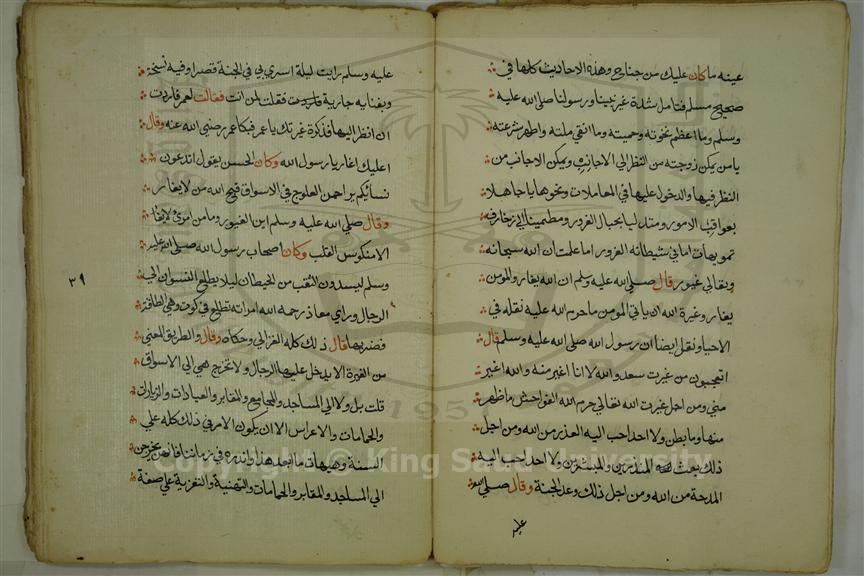 عينه ما كان عليك من جناح وهذه الاحاديث كلها في
صحيح مسلم فتامل شدة غيرة نبينا ورسولنا صلى الله عليه
وسلم وما اعظم نخوته وحميته وما انقي ملته واطهر شرعته
يا من يمكن زوجته من النظر الي الاجانب ويمكن الاجانب من
النظر فيها والدخول عليها في المعاملات ونحوها يا جاهلا
بعواقب الامور ومتدليا بحبال الغرور ومطمينا الي زخارف
تمويهات اماني شيطانه الغرور اما علمت ان الله سبحانه
وتعالي غيور قال صلى الله عليه وسلم ان الله يغار والمومن
يغار وغيرة الله ان ياتي المومن ما حرم الله عليه نقله في
الاحيا ونقل ايضا ان رسول الله صلى الله عليه وسلم قال
اتعجبون من غيرت سعد والله لانا اغير منه والله اغير
مني ومن اجل غيرت الله تعالي حرم الله الفواحش ما ظهر
منها وما بطن ولا احد احب اليه العذر من الله ومن اجل
ذلك بعث المنذرين والمبشرين ولا احد احب اليه
المدحة من الله ومن اجل ذلك وعد الجنة وقال صلي الله
عليه
عليه وسلم رايت ليلة اسري بي في الجنة قصرا وفيه نسخة
وبفنايه جارية فقلت لمن انت فقالت لعمر فاردت
ان انظر اليها فذكرة غيرتك يا عمر فبكا عمر رضي الله عنه وقال
اعليك اغار يا رسول الله وكان الحسن يقول اتدعون
نسائكم يزاحمن العلوج في الاسواق قبح الله من لا يغار
وقال صلي الله عليه وسلم اني لغيور وما من امرئ لا يغار
الا منكوس القلب وكان اصحاب رسول الله صلى الله عليه
وسلم ليسدون الثقب من الحيطان ليلا يطلع النسوان الي
الرجال وراي معاذ رحمه الله امراته تطلع في كوت وهي الطاقة
فضربها قال ذلك كله الغزالي وحكاه وقال والطريق المغني
من الغيرة الا يدخل عليها الرجال ولا تخرج هي الي الاسواق
قلت بل ولا الي المساجد والمجامع والمقابر والعيادات والزيارات
والحمامات والاعراس الا ان يكون الامر في ذلك كله علي
السنة وهيهات ما بعد هذا واندره في زماننا فانهن يخرجن
الي المساجد والمقابر والحمامات والتهنية والتعزية علي صفة
٣٩
1957
Copyright © King Saud University